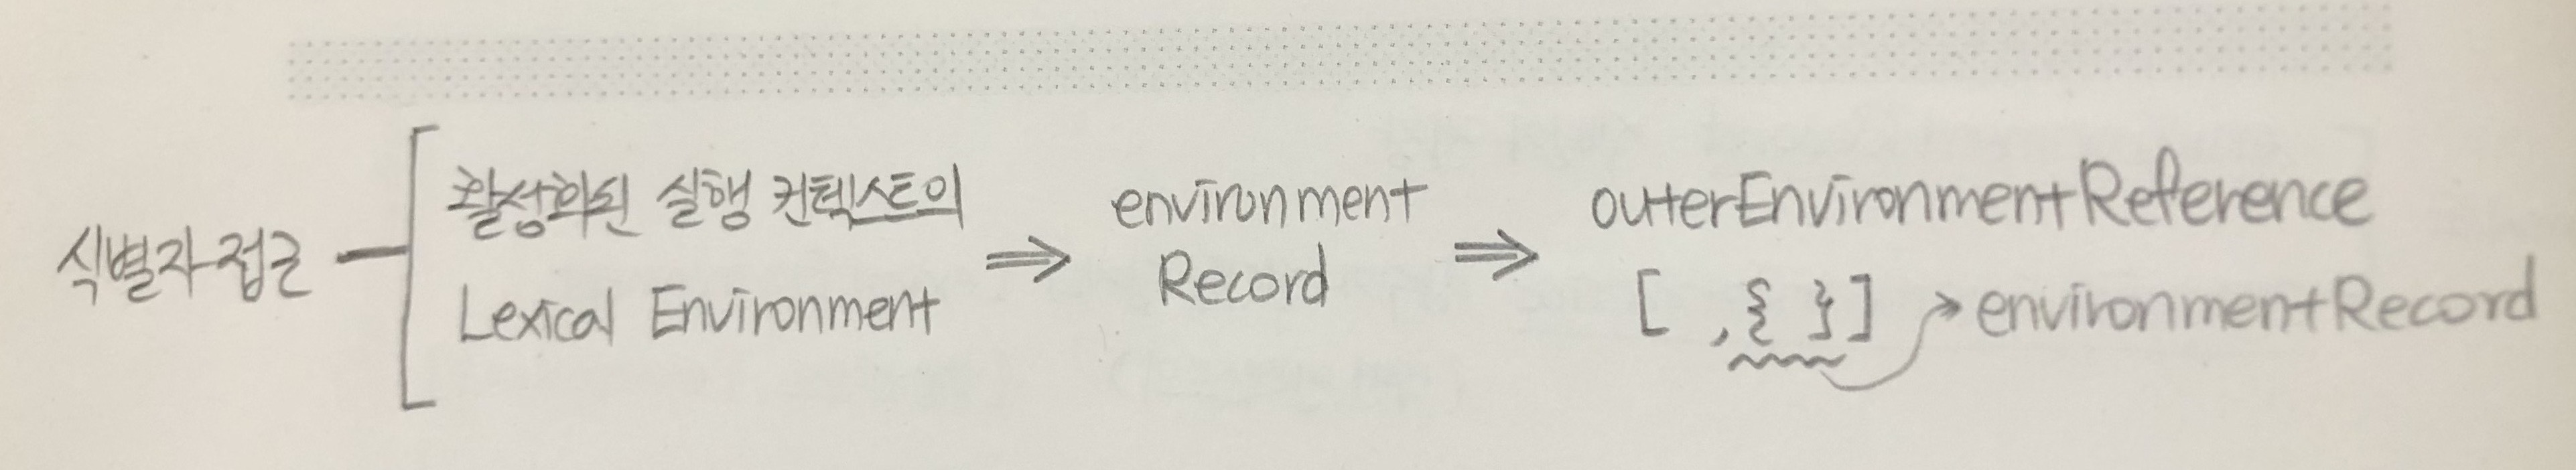 식별자 접근
활성화된 실행 컨텍스트의
Lexical Environment
⇒
environment
Record
⇒
outerEnvironmentReference
[ ,{ }] → environmentRecord